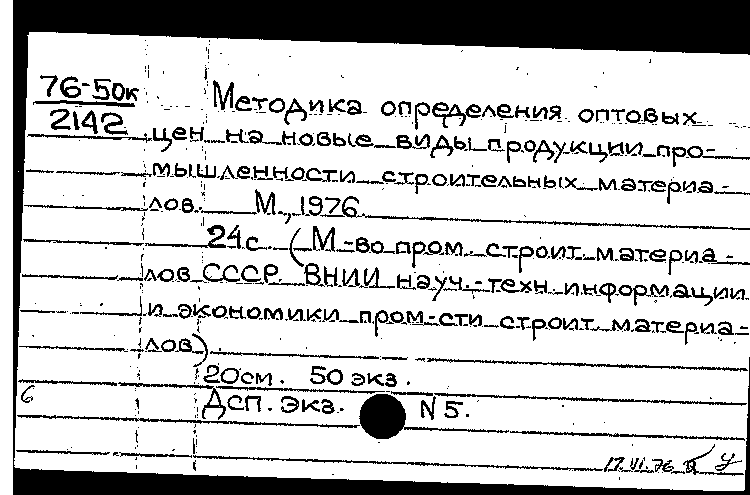 76-50к
2142
Методика определения оптовых
цен на новые виды продукции про-
мышленности строительных материа-
лов. М., 1976.
24с. (М-во пром. строит. материа-
лов СССР. ВНИИ науч.-техн. информации
и экономики пром-сти строит. материа-
лов).
20см. 50 экз.
Дсп. Экз. N 5.
6
17.VI.76